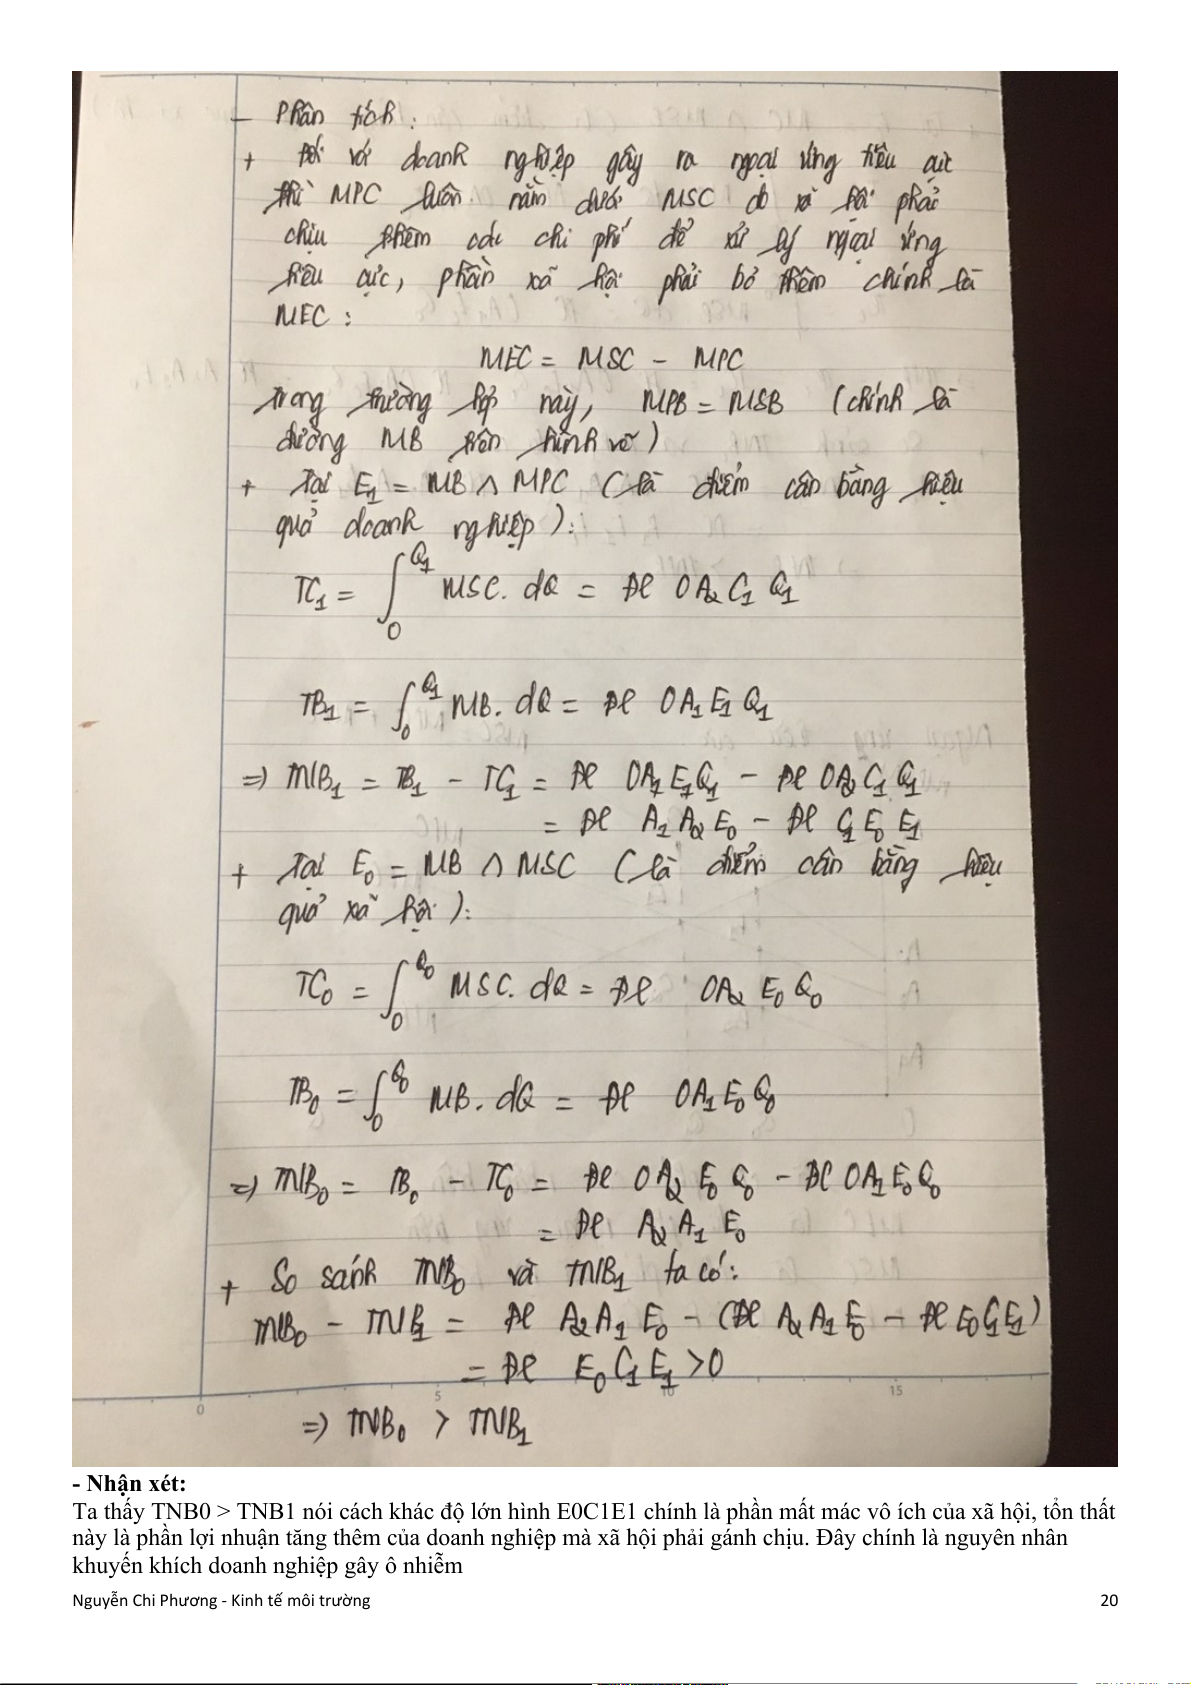 - Phân tích:
+ Đối với doanh nghiệp gây ra ngoại ứng tiêu cực
thì MPC luôn nằm dưới MSC do xã hội phải
chịu thêm các chi phí để xử lý ngoại ứng
tiêu cực, phần xã hội phải bỏ thêm chính là
MEC:
MEC = MSC - MPC
trong trường hợp này, MPB = MSB (chính là
đường MB trên hình vẽ)
+ Tại E1 = MB ∧ MPC (là điểm cân bằng hiệu
quả doanh nghiệp):
TC1 = ∫0^Q1 MSC. dQ = Dt OA2 C1 Q1
TB1 = ∫0^Q1 MB. dQ = Dt OA1 E1 Q1
=> TNB1 = TB1 - TC1 = Dt OA1E1Q1 - Dt OA2 C1 Q1
= Dt A1 A2 E0 - Dt C1 E0 E1
+ Tại E0 = MB ∧ MSC (là điểm cân bằng hiệu
quả xã hội):
TC0 = ∫0^Q0 MSC. dQ = Dt OA2 E0 Q0
TB0 = ∫0^Q0 MB. dQ = Dt OA1 E0 Q0
=> TNB0 = TB0 - TC0 = Dt OA2 E0 Q0 - Dt OA1E0Q0
= Dt A2 A1 E0
+ So sánh TNB0 và TNB1 ta có:
TNB0 - TNB1 = Dt A2A1 E0 - (Dt A2A1E0 - Dt E0C1E1)
= Dt E0C1E1 >0
0 5 10 15
=> TNB0 > TNB1
- Nhận xét:
Ta thấy TNB0 > TNB1 nói cách khác độ lớn hình E0C1E1 chính là phần mất mác vô ích của xã hội, tổn thất
này là phần lợi nhuận tăng thêm của doanh nghiệp mà xã hội phải gánh chịu. Đây chính là nguyên nhân
khuyến khích doanh nghiệp gây ô nhiễm
Nguyễn Chi Phương - Kinh tế môi trường 20